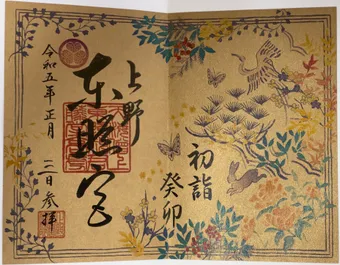 初詣
癸卯
上野
東照宮
令和五年正月
二日参拝